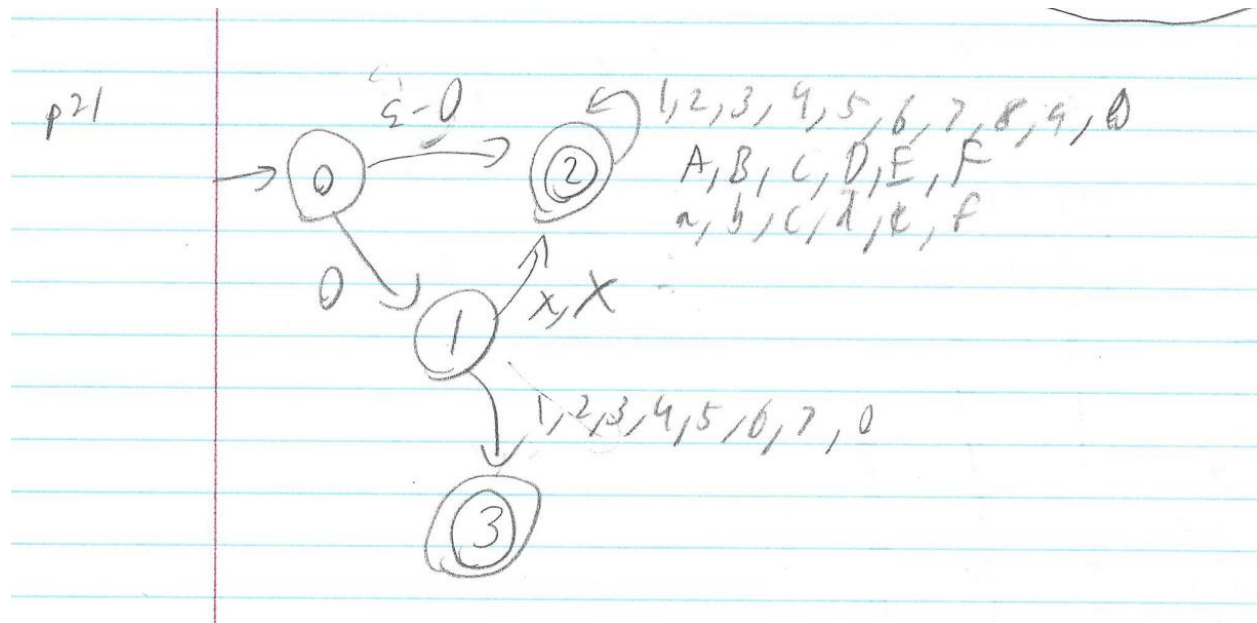 p21
ε-0
1,2,3,4,5,6,7,8,9,0
A,B,C,D,E,F
a,b,c,d,e,f
0
2
0
x,X
1
1,2,3,4,5,6,7,0
3